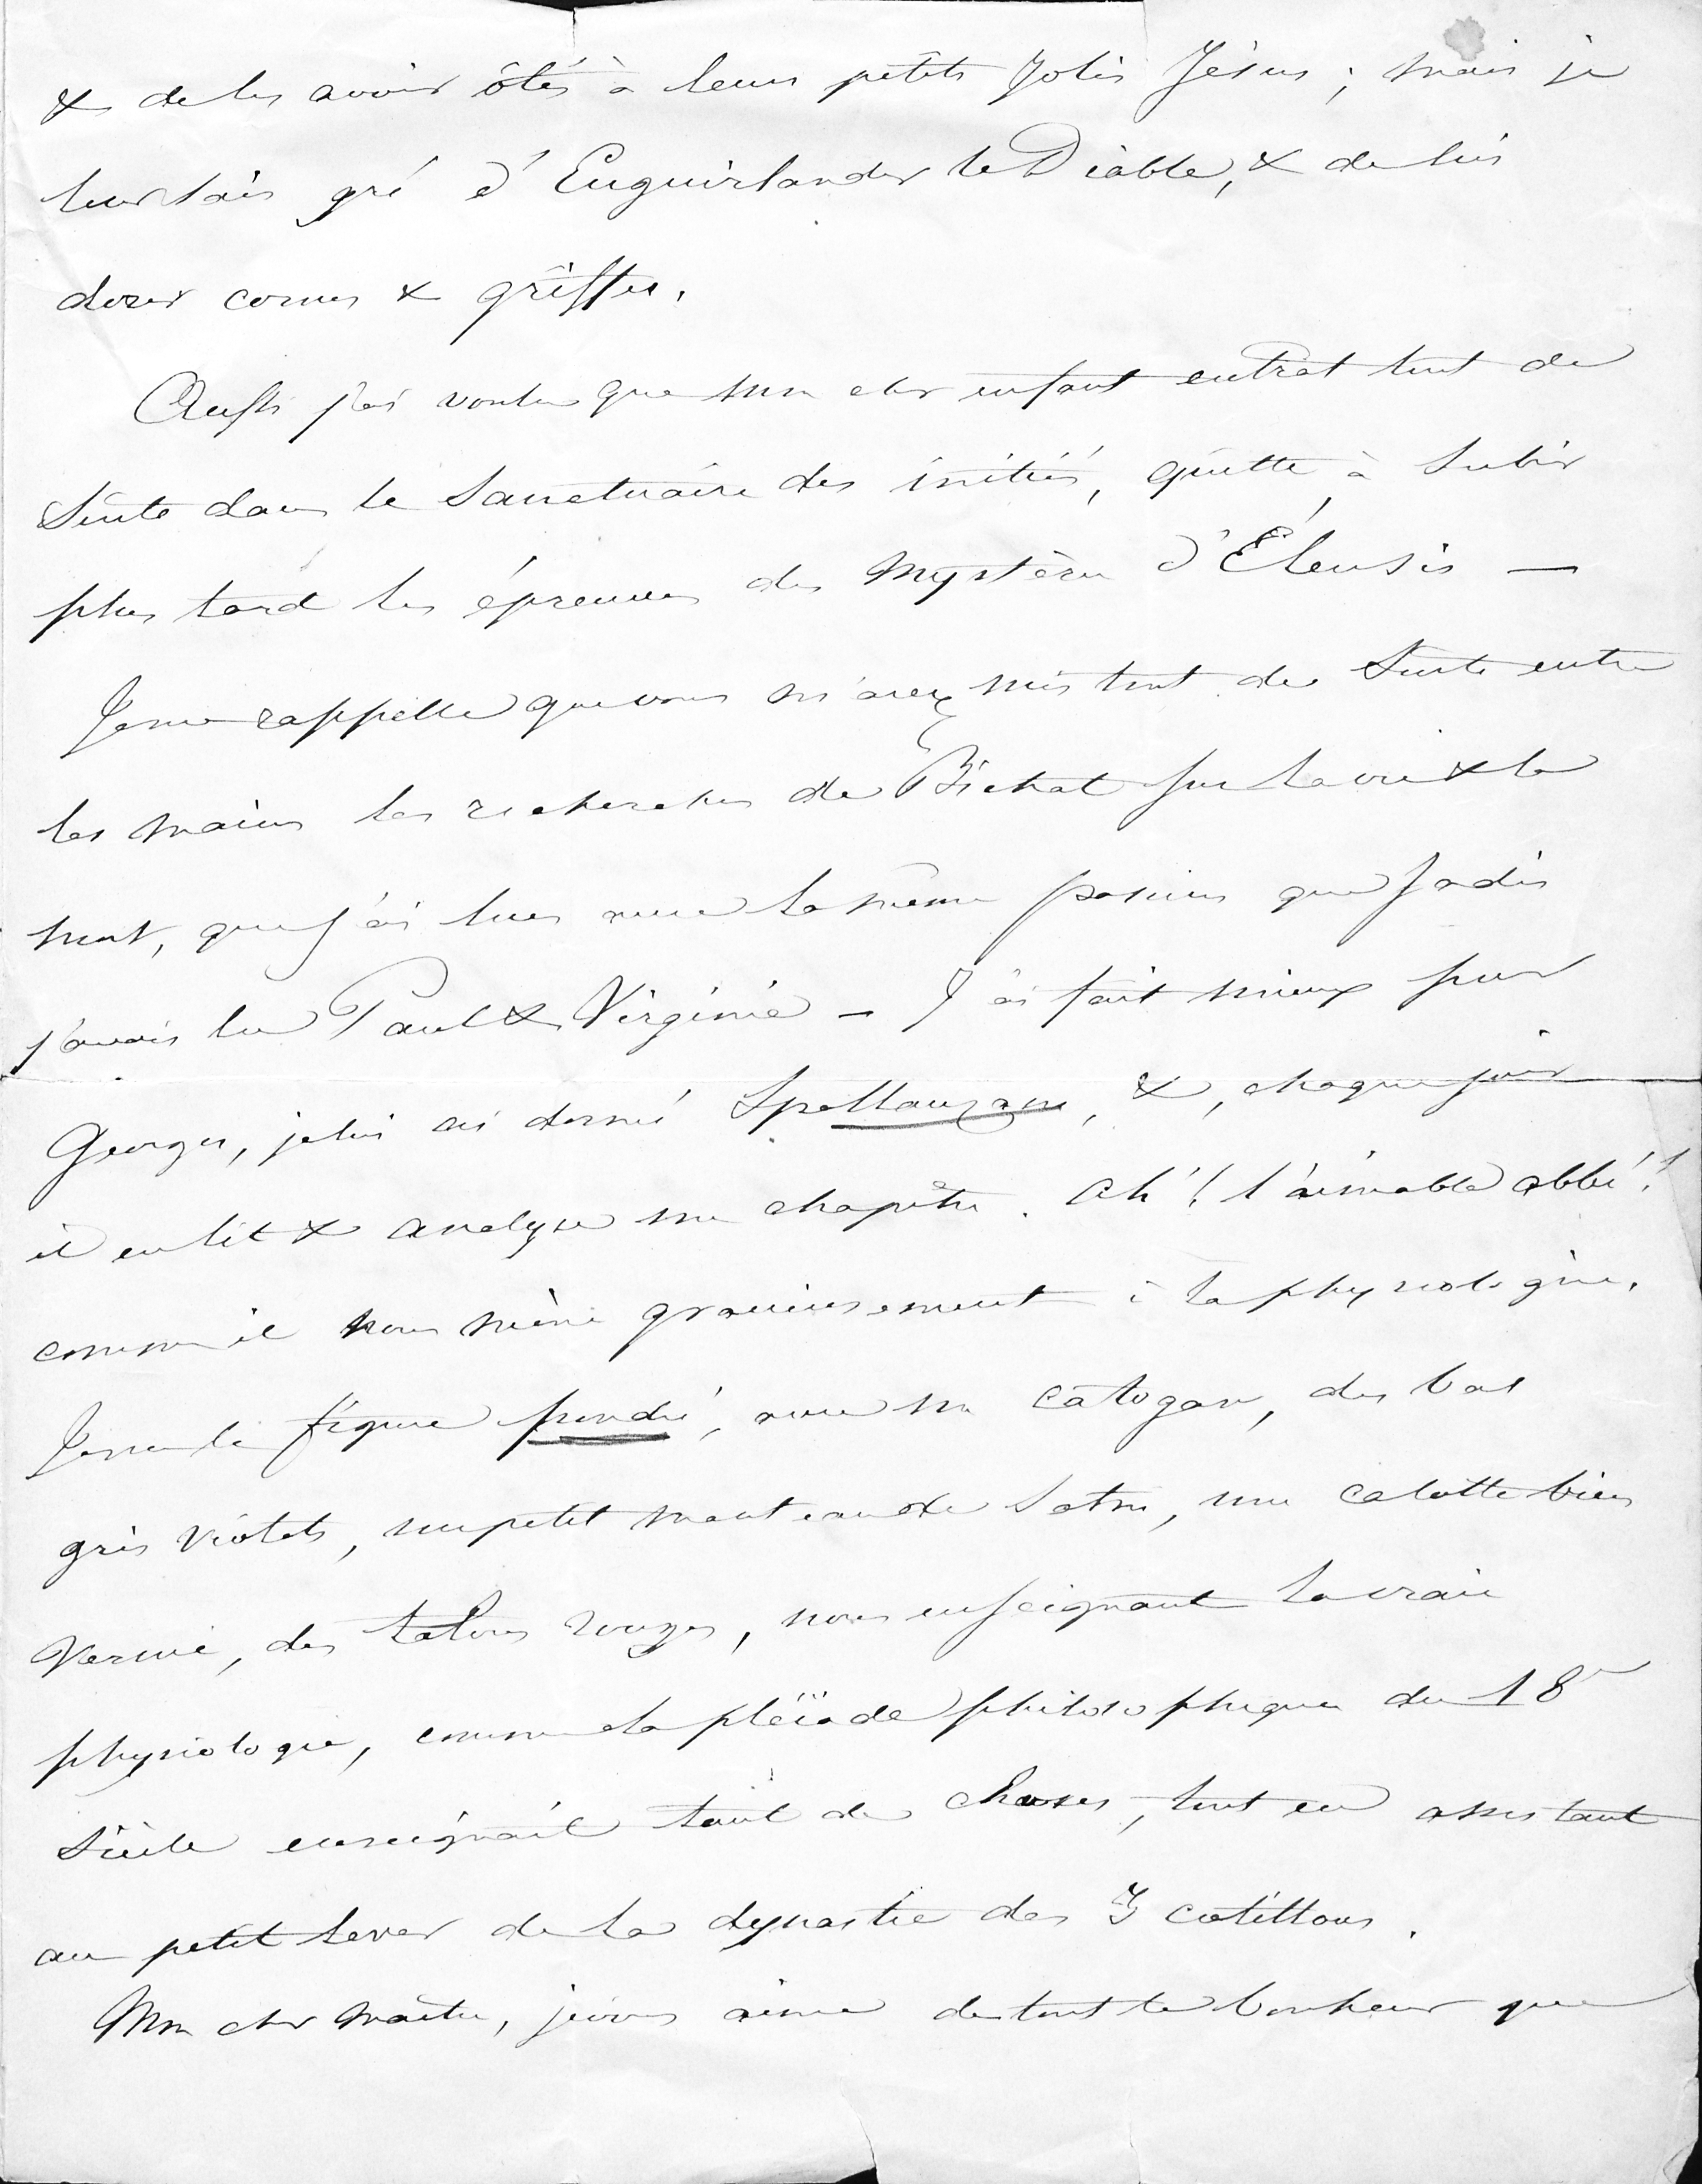 & de les avoir ôtés à leurs petits Jolis Jésus ; mais je
leur sais gré d'Enguirlander le Diable, & de lui
dorer cornes & griffes.
Aussi j'ai voulu que mon cher enfant entrât tout de
suite dans le Sanctuaire des initiés, quitte à subir
plus tard les épreuves des Mystères d'Éleusis —
Je me rappelle que vous m'avez mis tout de suite entre
les mains les recherches de Bichat sur la vie & la
mort, que j'ai lues avec la même passion que Jadis
j'avais lu Paul & Virginie – J'ai fait mieux pour
Georges, je lui ai donné Spallanzani, &, chaque jour
il en lit & analyse un chapitre. Ah ! l'aimable abbé !
comme il nous mène gracieusement à la physiologie.
Je me le figure poudré, avec un catogan, des bas
gris violets, un petit manteau de Satin, une calotte bien
vernie, des talons rouges, nous enseignant la vraie
physiologie, comme la pléïade philosophique du 18e
siècle enseignait tant de choses, tout en assistant
au petit lever de la dynastie des 3 cotillons.
Mon cher Maître, je vous aime de tout le bonheur que